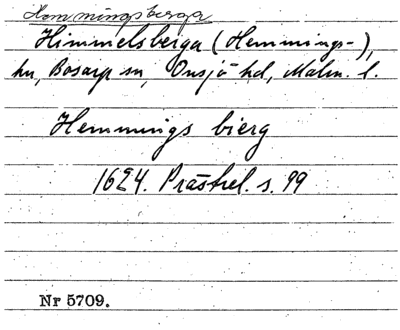 Hemmingsberga
Himmelsberga (Hemmings-),
hn, Bosarp sn, Onsjö hd, Malm. l.
Hemmings bierg
1624. Prästrel. s. 99
Nr 5709.